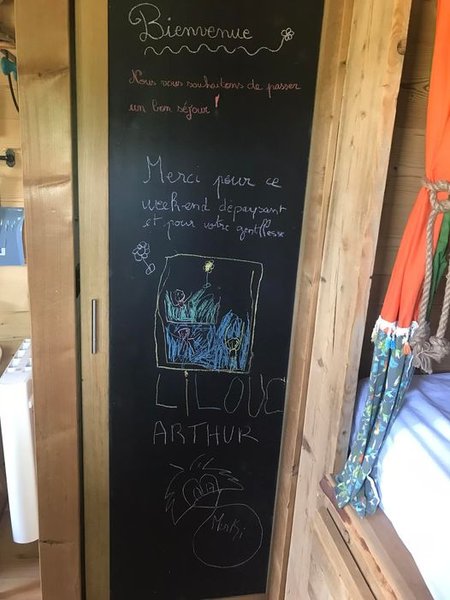 Bienvenue
Nous vous souhaitons de passer
un bon séjour !
Merci pour ce
week-end dépaysant
et pour votre gentillesse
LILOUE
ARTHUR